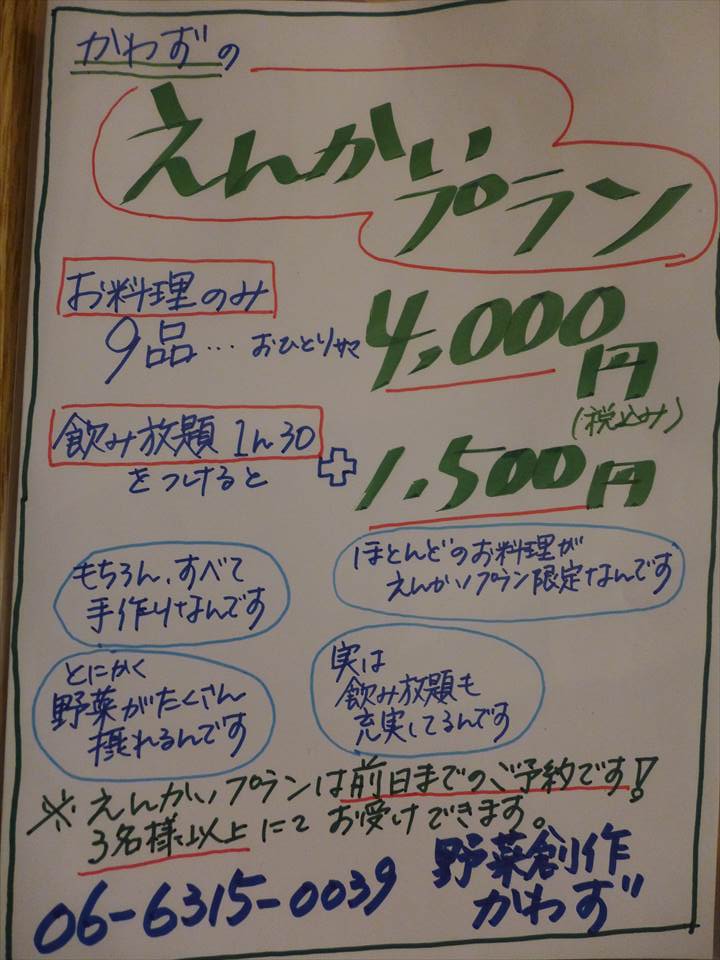 かわずの
えんかい
プラン
お料理のみ
9品…おひとりサマ
4,000円
(税込み)
飲み放題1h30
をつけると
+1,500円
もちろん、すべて
手作りなんです
ほとんどのお料理が
えんかいプラン限定なんです
とにかく
野菜がたくさん
摂れるんです
実は
飲み放題も
充実してるんです
※えんかいプランは前日までのご予約です!
3名様以上にてお受けできます。
野菜創作
かわず
06-6315-0039